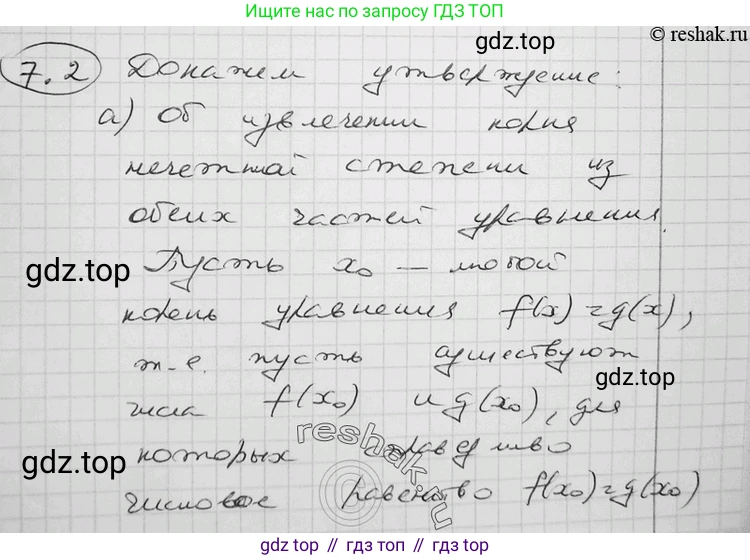 Ищите нас по запросу ГДЗ ТОП
© reshak.ru
gdz.top
7.2 Докажем утверждение:
а) Об извлечении корня
нечетной степени из
обеих частей уравнения.
gdz.top
Пусть x₀ — любой
корень уравнения f(x)=g(x),
т.е. пусть существуют
gdz.top
числа f(x₀) и g(x₀), для
reshak.ru
gdz.top
которых справедливо
числовое равенство f(x₀)=g(x₀)
gdz.top // гдз.топ // gdz.top